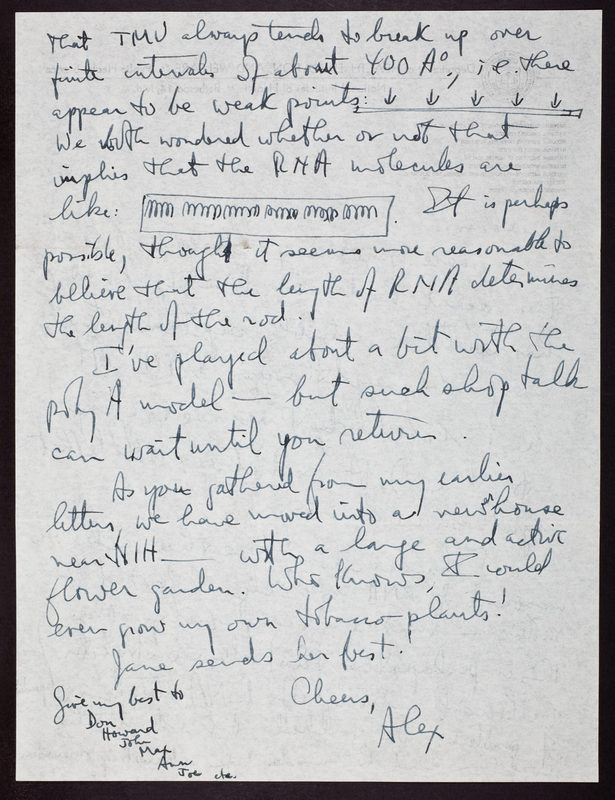 that TMV always tends to break up over
finite intervals of about 400 A°, i.e. there
appear to be weak points:
We both wondered whether or not that
implies that the RNA molecules are
like: . It is perhaps
possible, though it seems more reasonable to
believe that the length of RNA determines
the length of the rod.
I've played about a bit with the
poly A model — but such shop talk
can wait until you return.
As you gathered from my earlier
letters, we have moved into a new house
near NIH — with a large and active
flower garden. Who knows, I could
even grow my own tobacco plants!
Jane sends her best.
Cheers,
Alex
Give my best to
Don
Howard
John
Max
Ann
Joe etc.